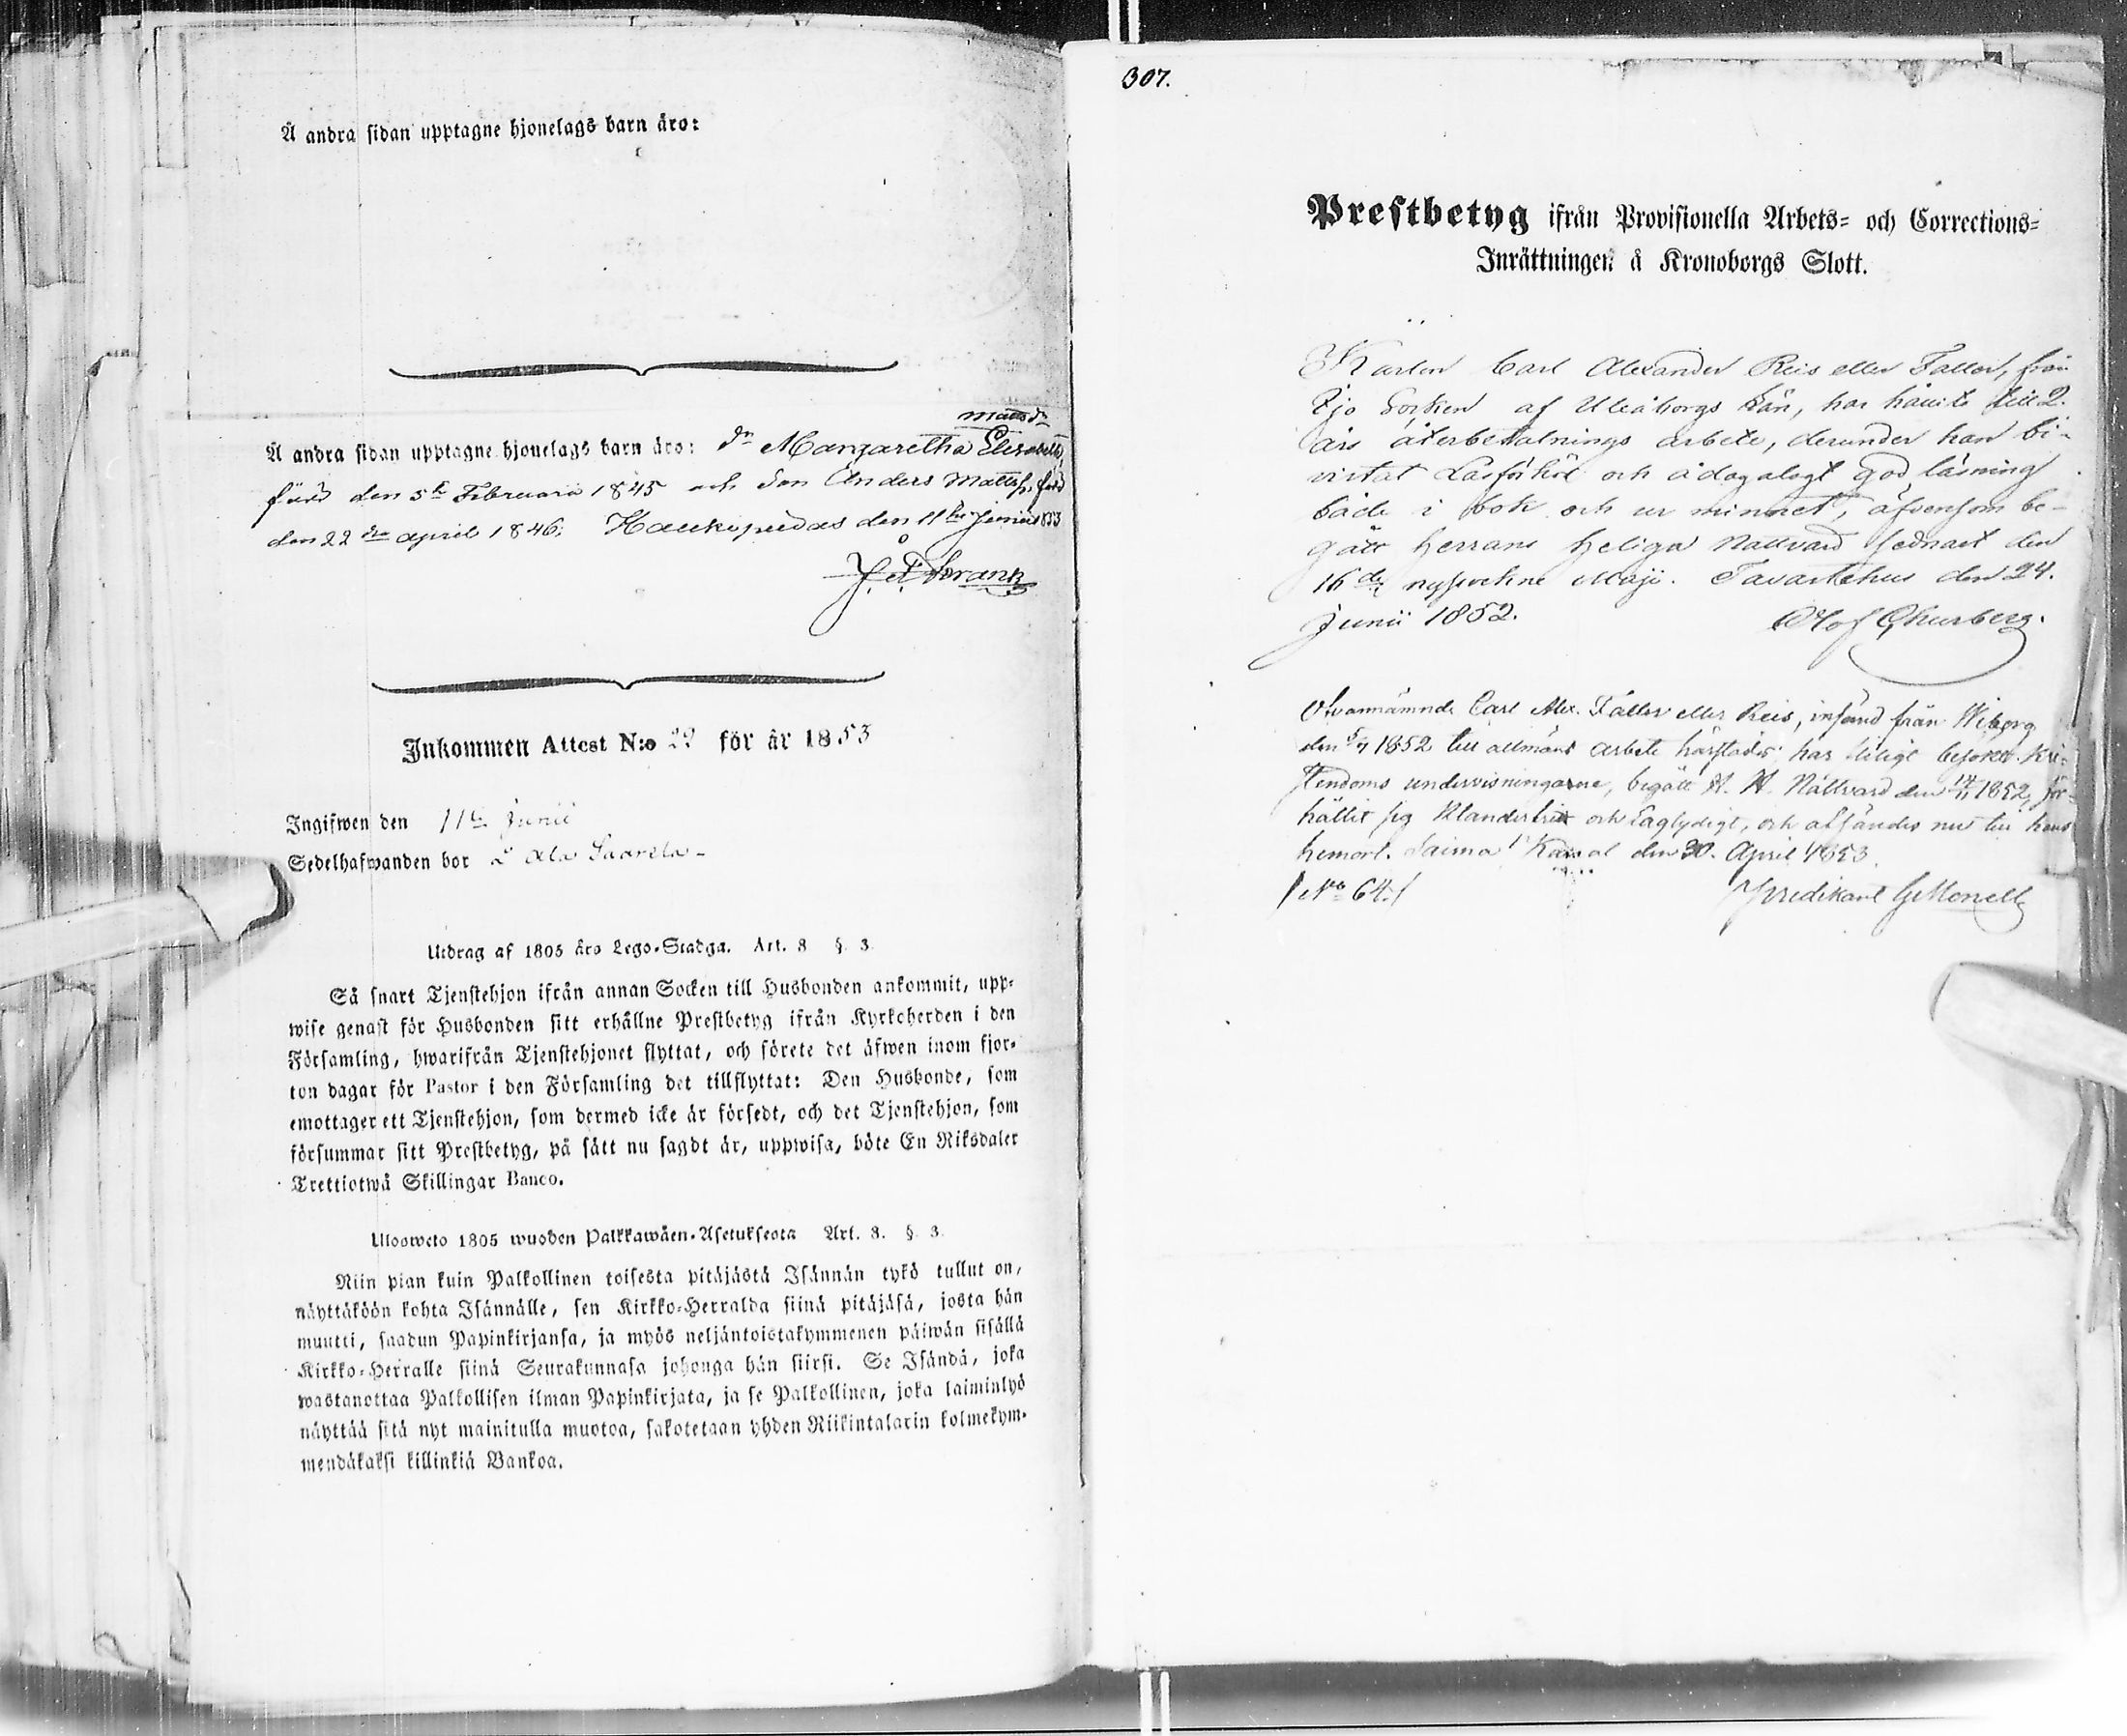 Å andra sidan upptagne hjonelags barn äro:
Mattsdr
Å andra sidan upptagne hjonelags barn äro: dr Margaretha Elisabeth,
född den 5te Februarii 1845 och son Anders Mattss. född
den 22dra april 1846. Haukipudas den 11te Junii 1853
J. A. Frank
Inkommen Attest N:o 29 för år 1853
Ingifwen den 11te Junii
Sedelhafwanden bor Ala Saarela
Utdrag af 1805 års Lego-Stadga. Art. 8 § 3.
Så snart Tjenstehjon ifrån annan Socken till Husbonden ankommit, upp-
wise genast för Husbonden sitt erhållne Prestbetyg ifrån Kyrkoherden i den
Församling, hwarifrån Tjenstehjonet flyttat, och förete det äfwen inom fjor-
ton dagar för Pastor i den Församling det tillflyttat: Den Husbonde, som
emottager ett Tjenstehjon, som dermed icke är försedt, och det Tjenstehjon, som
försummar sitt Prestbetyg, på sätt nu sagdt är, uppwisa, böte En Riksdaler
Trettiotwå Skillingar Banco.
Ulosweto 1805 wuoden Palkkawäen-Asetuksesta Art. 8. § 3.
Niin pian kuin Palkollinen toisesta pitäjästä Isännän tykö tullut on,
näyttäköön kohta Isännälle, sen Kirkko-Herralda siinä pitäjäsä, josta hän
muutti, saadun Papinkirjansa, ja myös neljäntoistakymmenen päiwän sisällä
Kirkko-Herralle siinä Seurakunnasa johonga hän siirsi. Se Isändä, joka
wastanottaa Palkollisen ilman Papinkirjata, ja se Palkollinen, joka laiminlyö
näyttää sitä nyt mainitulla muotoa, sakotetaan yhden Riikintalarin kolmekym-
mendäkaksi killinkiä Bankoa.
307.
Prestbetyg ifrån Provisionella Arbets- och Corrections-
Inrättningen å Kronoborgs Slott.
Karlen Carl Alexander Reis eller Faller, från
Ijo Socken af Uleåborgs Län, har häuits till 2.
års återbetalnings arbete, derunder han bi-
vistat Läsförhör och ådagalagt god läsning
både i bok och ur minnet, äfvensom be-
gått Herrans Heliga Nattvard sednast den
16de nyssvekne Maji. Tavastehus den 24.
Junii 1852. Olof Churberg.
Ofvannämnde Carl Alex. Faller eller Reis, insänd från Wiborg
den 5/7 1852 till allmänt arbete härstädes har flitigt besökt Kri-
stendoms undervisningarne, begått H. H. Nattvard den 14/11 1852, för-
hållit sig klanderfritt och saglydigt, och afsändes nu till hans
hemort. Saima Kanal den 30. April 1853.
/No 64./ Predikant G Monell